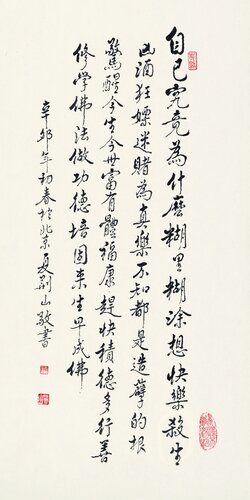 自己究竟為什麼糊里糊涂想快樂殺生
凶酒狂嫖迷賭為真樂不知都是造孽的根
驚醒今生今世富有體福康趕快積德多行善
修學佛法做功德培固來生早成佛
辛卯年初春於北京夏荆山敬書